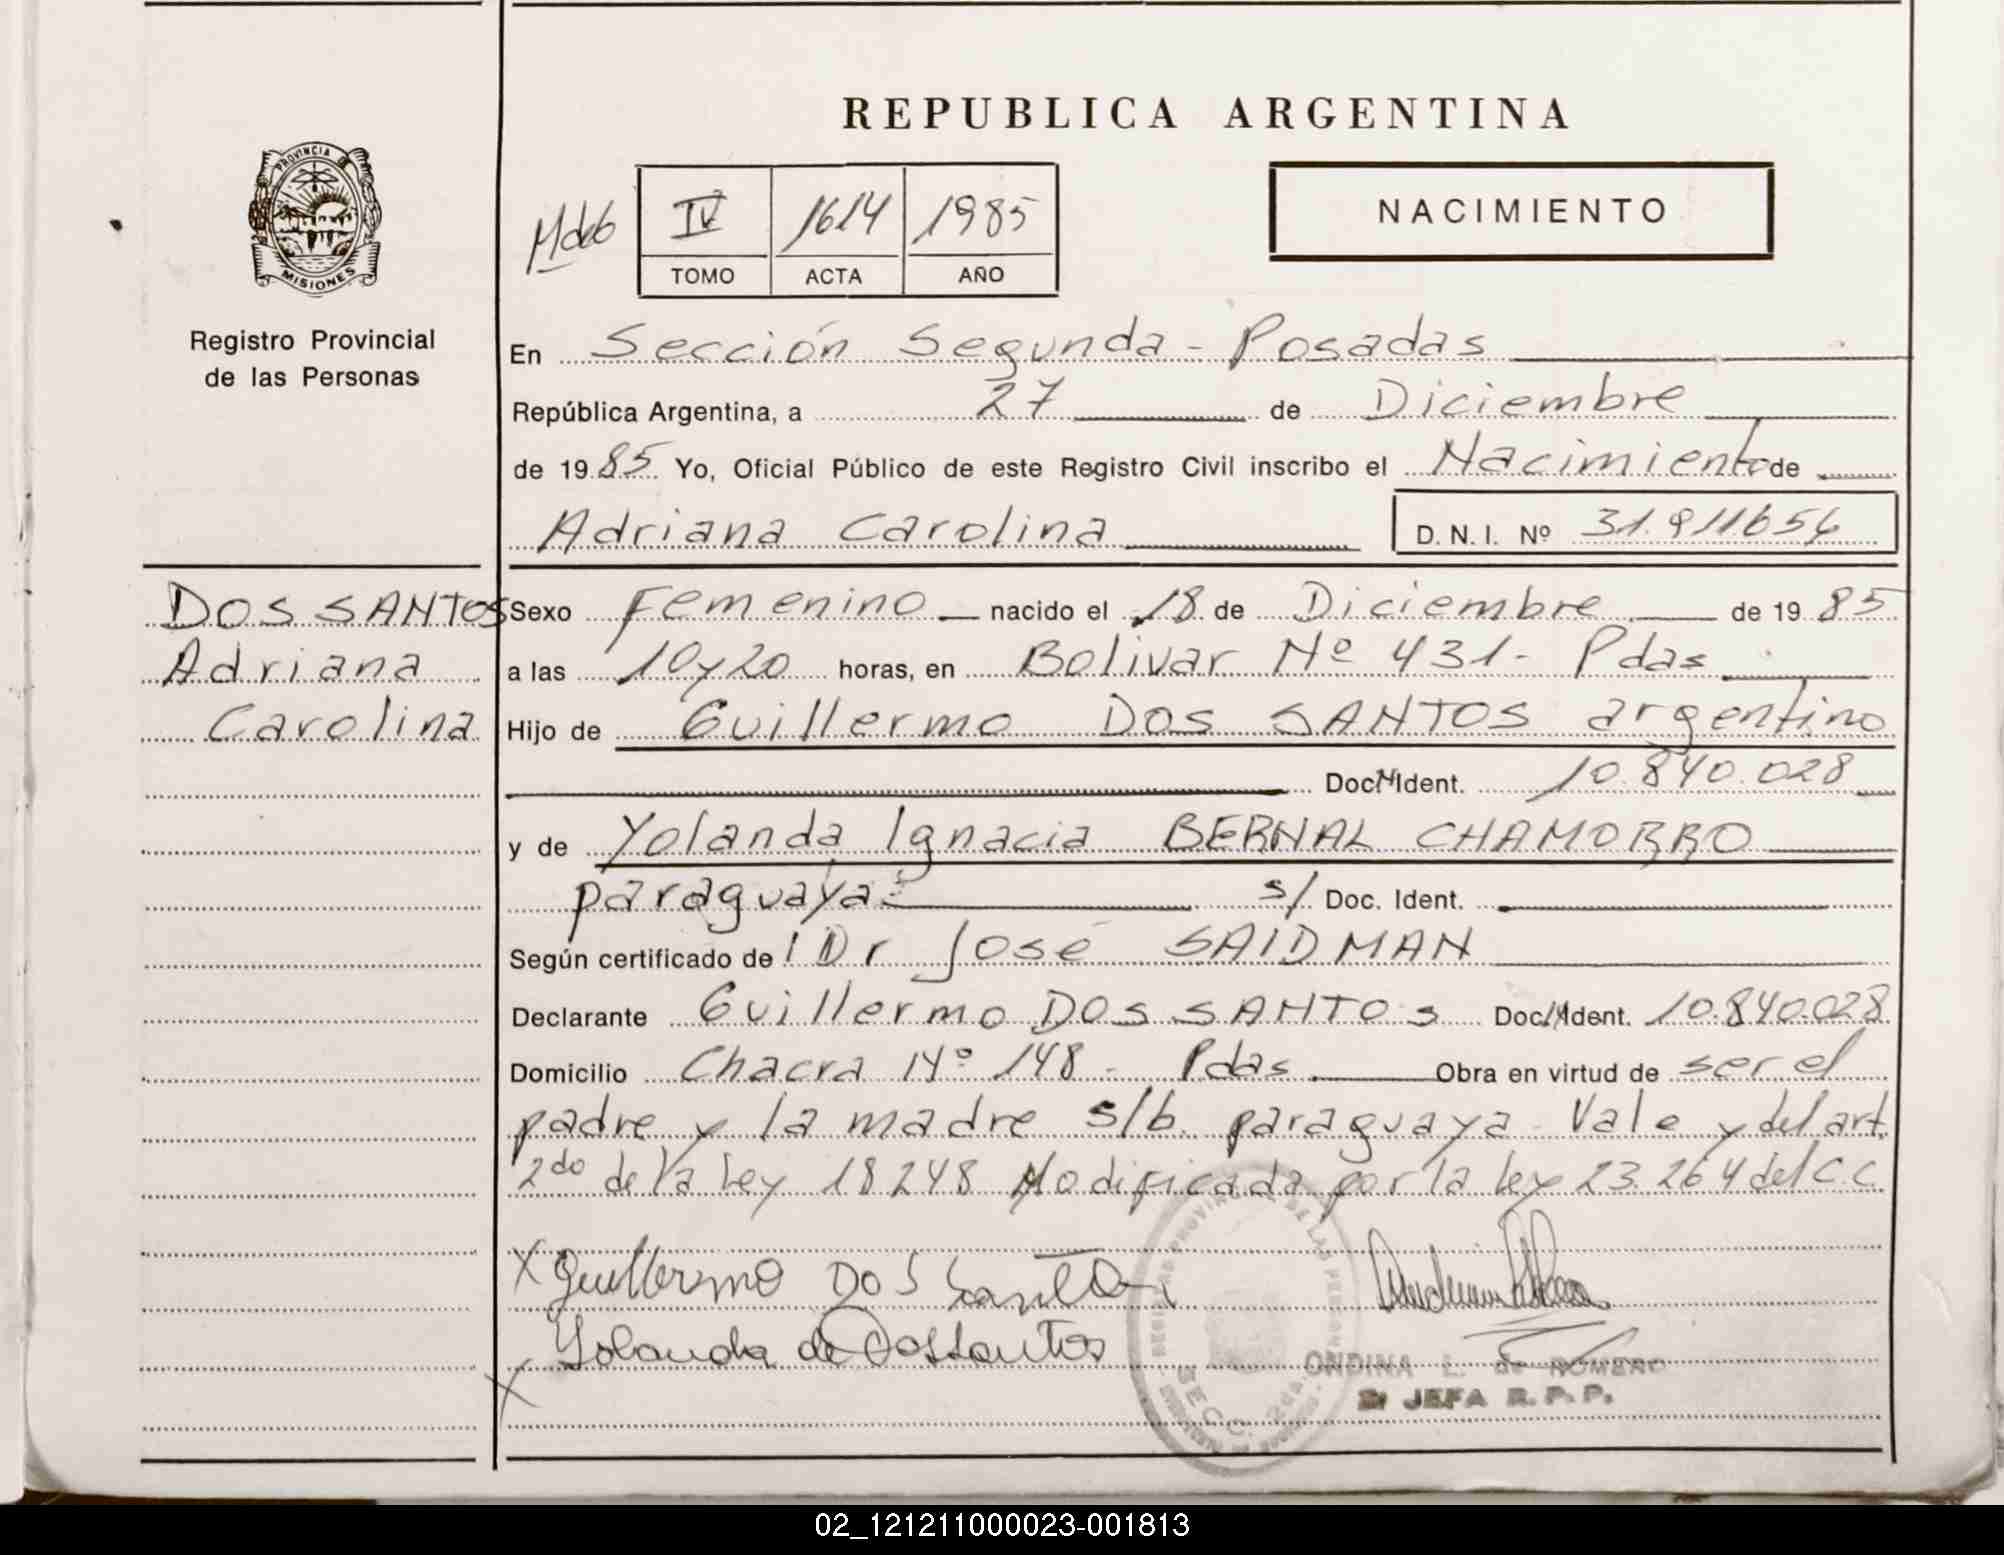 REPUBLICA ARGENTINA
PROVINCIA DE
MISIONES
Registro Provincial
de las Personas
IV 1614 1985
TOMO ACTA AÑO
NACIMIENTO
En Sección Segunda - Posadas
República Argentina, a 27 de Diciembre
de 1985 Yo, Oficial Público de este Registro Civil inscribo el Nacimiento de
Adriana Carolina D.N.I. Nº 31.911656
DOS SANTOS
Adriana
Carolina
Sexo Femenino nacido el 18 de Diciembre de 1985
a las 10 y 20 horas, en Bolivar Nº 431- Pdas
Hijo de Guillermo DOS SANTOS argentino
Doc. N Ident. 10.840.028
y de Yolanda Ignacia BERNAL CHAMORRO
paraguaya. s/ Doc. Ident.
Según certificado del Dr José SAIDMAN
Declarante Guillermo DOS SANTOS Doc. N Ident. 10.840.028
Domicilio Chacra Nº 148 - Pdas Obra en virtud de ser el
padre y la madre s/b. paraguaya - Vale y del art.
2do de la Ley 18248 Modificada por la ley 23.264 del C.C.
X Guillermo Dos Santos
X Yolanda de Dos Santos
SECC. 2da.
ONDINA L. de ROMERO
JEFA R.P.P.
02_121211000023-001813